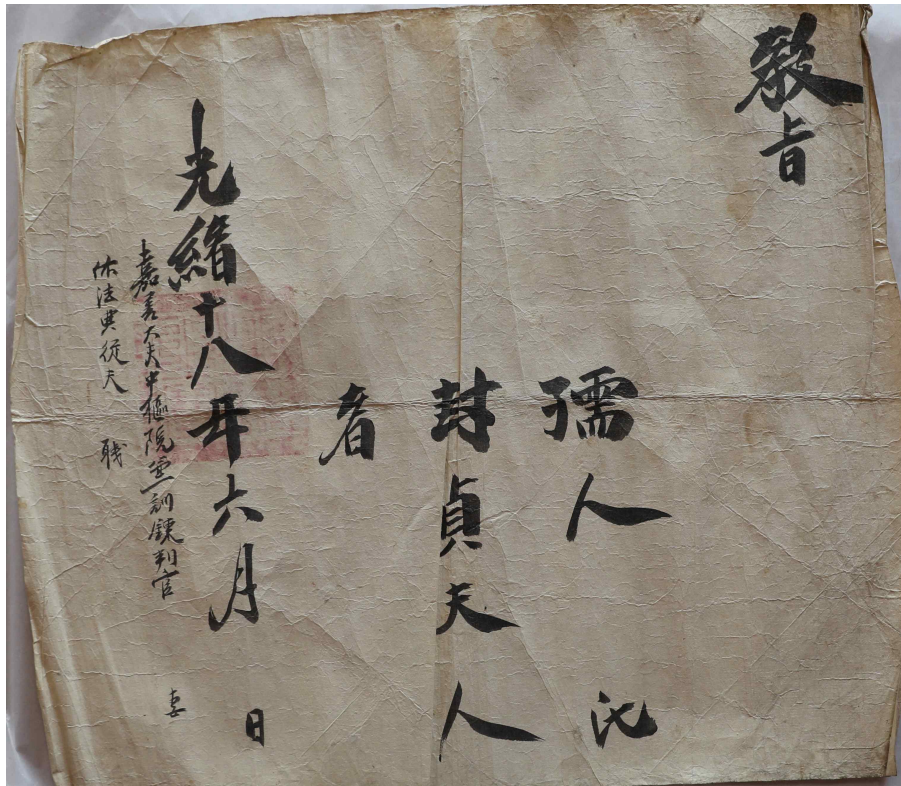 敎旨
孺人 氏
封貞夫人
者
光緖十八年六月 日
嘉善大夫中樞院訓鍊判官 妻
依法典從夫 職